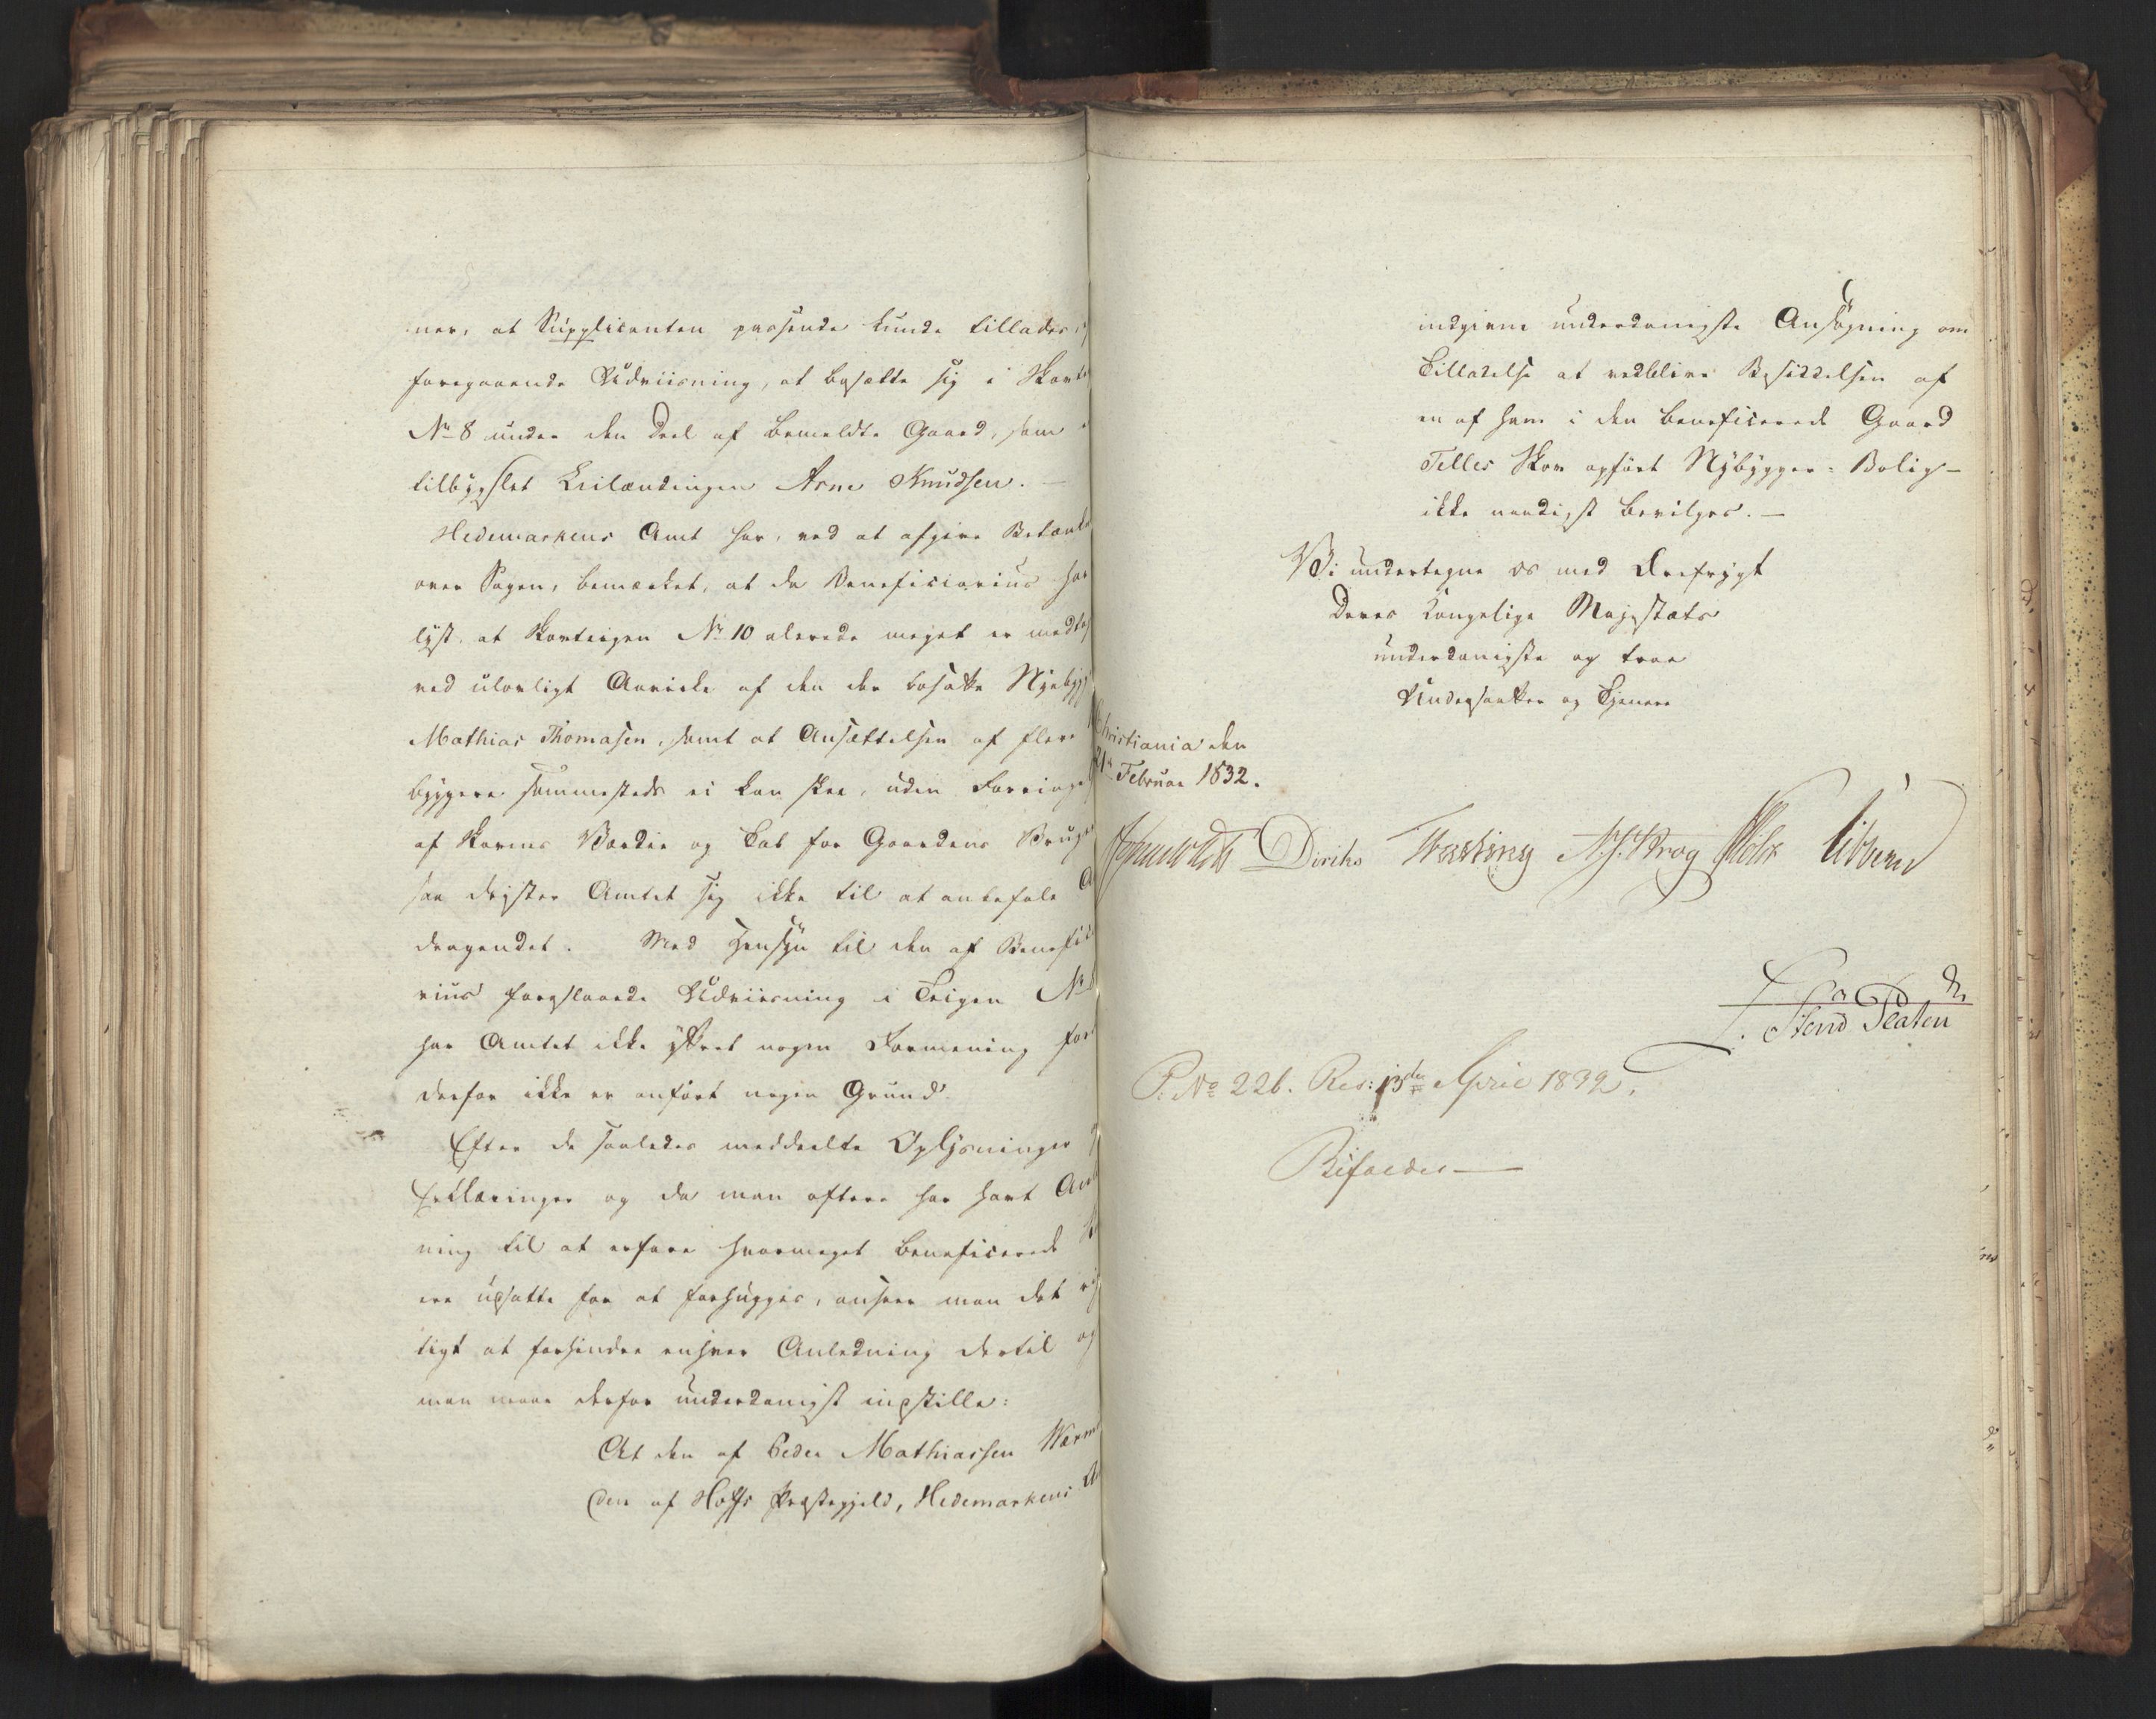 ner, at Supplicanten passende kunde tillades,
foregaaende Udviisning, at bosætte sig i Skovte
No 8 under den Deel af bemeldte Gaard, som
tilbygslet Leilændingen Arne Knudsen. —
Hedemarkens Amt har, ved at afgive Betænk
over Sagen, bemærket, at da Beneficiarius har
lyst, at Skovteigen No 10 allerede meget er medta
ved ulovligt Anvirke af den der bosatte Nyebygg
Mathias Thomasen, samt at Ansættelsen af flere
byggere sammesteds ei kan skee, uden Forringe
af Skovens Værdie og Tab for Gaardens Bruge
saa drister Amtet sig ikke til at anbefale
dragendet. Med Hensyn til den af Benefici
rius foreslaaede Udviisning i Teigen No
har Amtet ikke yttret nogen Formening
derfor ikke er anført nogen Grund.
Efter de saaledes meddeelte Oplysninger
Erklæringer og da man oftere har havt An
ning til at erfare hvormeget beneficerede
ere udsatte for at forhugges, anseer man det
tigt at forhindre enhver Anledning dertil og
man maae derfor underdanigst indstille:
At den af Peder Mathiassen
den af Hoffs Præstegjeld, Hedemarkens A
indgivne underdanigste Ansøgning om
Tilladelse at vedblive Besiddelsen af
en af ham i den beneficerede Gaard
Telles Skov opført Nybygger-Bolig
ikke naadigst bevilges. —
Vi undertegne os med Ærefrygt
Deres Kongelige Majestæts
underdanigste og troe
Undersaatter og Tjenere
Christiania den
21 Februar 1832.
Diriks Fasting N. J. Krog Holst Vibberud
Platen
P: No 226. Res: 13de April 1832.
Bifaldes —